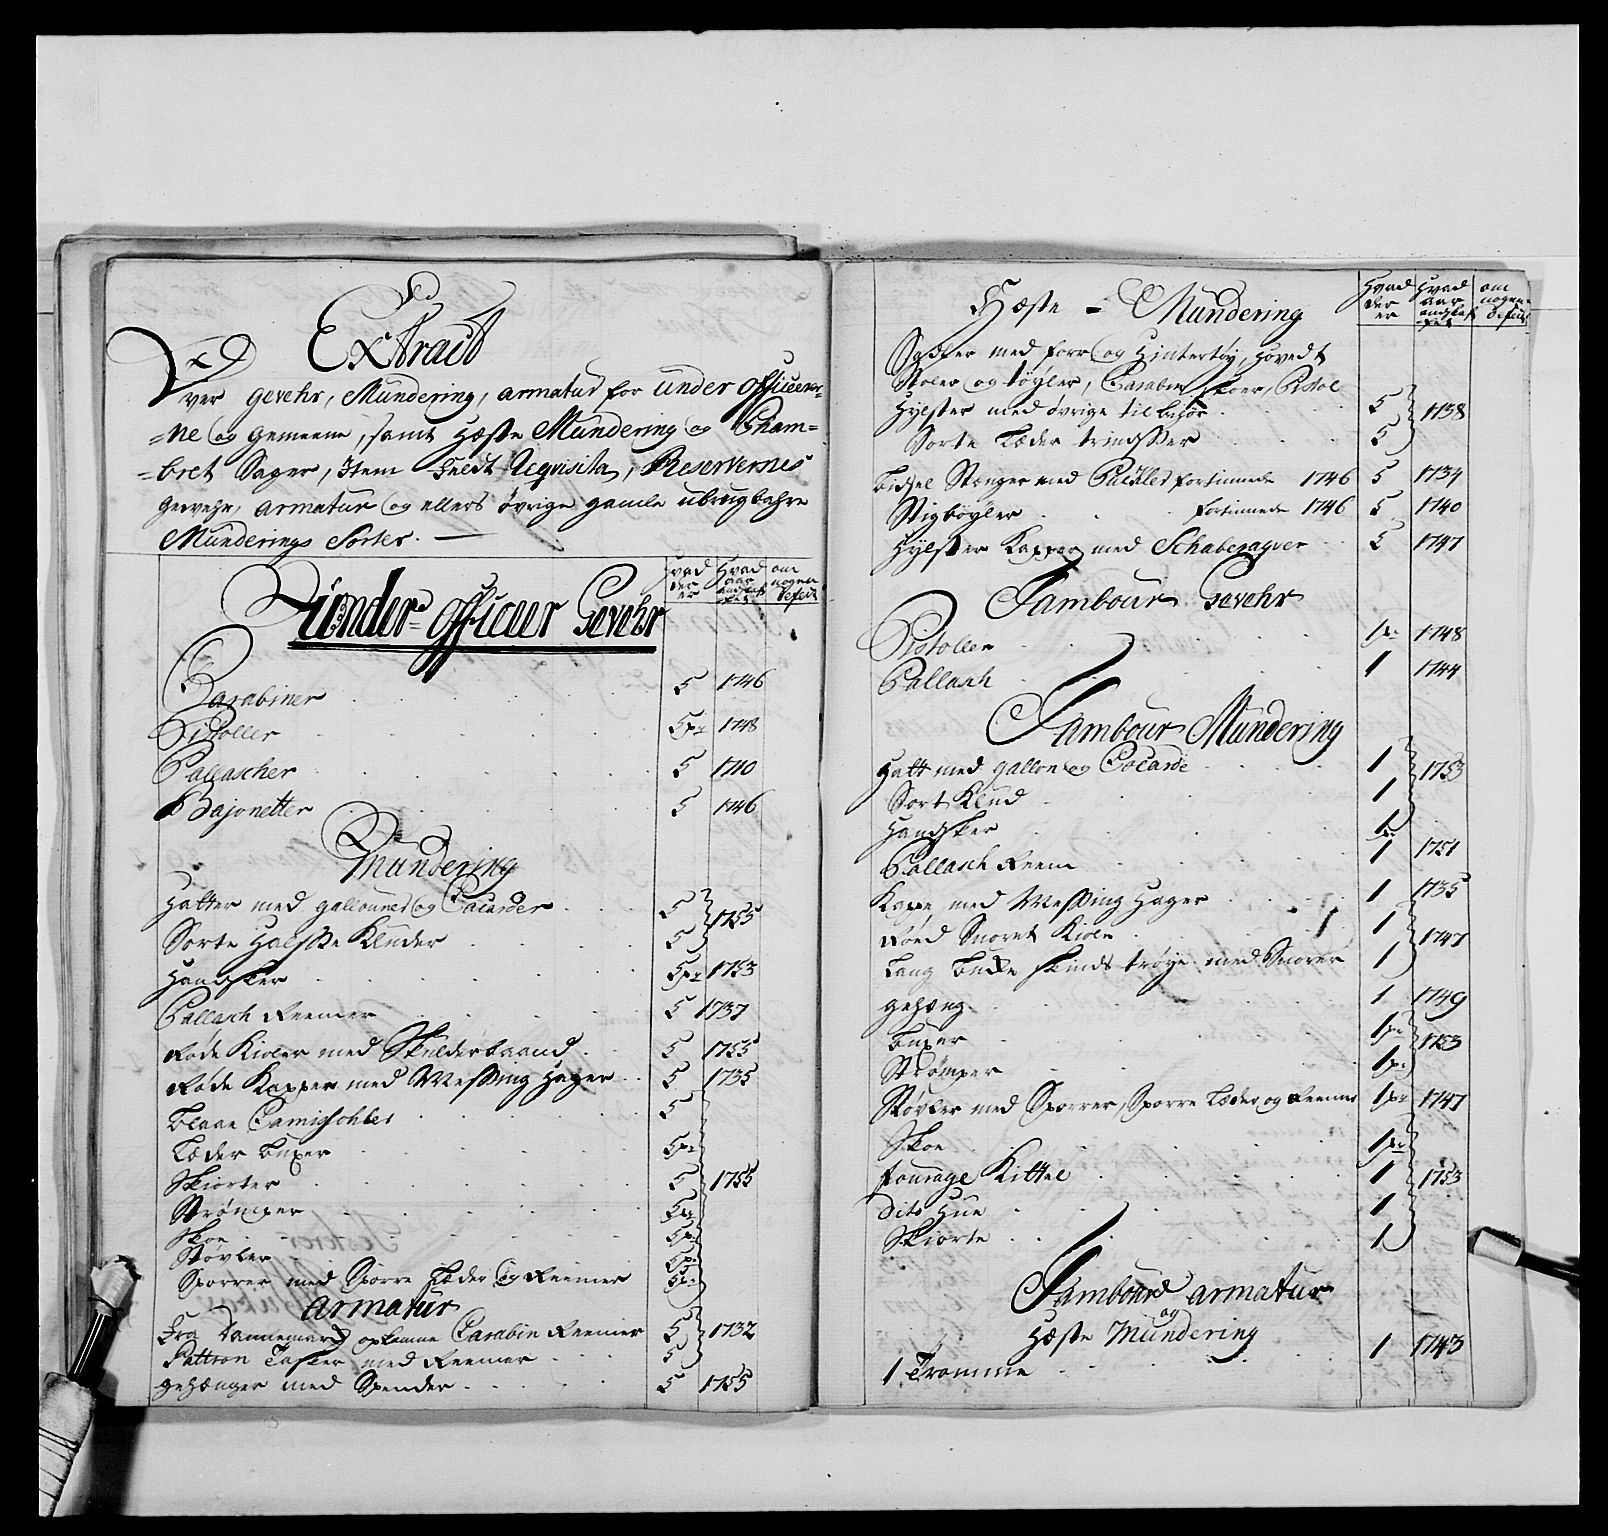 Extract
Over gevehr, Mundering, armatur for under officeer-
=ne og gemeene, samt Hæste Mundering og Cham=
=bret Sager, Item Feldt Reqvisita, Reservernes
gevehr, armatur og ellers øvrige gamle ubrugbahre
Munderings Sorter. —
Hvad der er
Hvad aar andskaffet
om nogen Deficit
Under officeer Gevehr
Carabiner 5 1746
Pistoller 5 pr 1748
Pallascher 5 1710
Bajonetter 5 1746
Mundering
Hatter med gallouner og Cocarder 5
Sorte Halsse Kluder 5 1755
Handsker 5 pr 1753
Pallasch Reemer 5 1737
Røde Kioler med Skulderbaand 5 1755
Røde Kapper med Messing Hager 5 1735
Blaae Camisohler 5
Læder buxer 5 pr
Skiorter 5 1755
Strømper 5 pr
Skoe 5 pr
Støvler 5 pr
Sporrer med Sporre Læder og Reemer 5 pr
armatur
Fra Dannemark ankomne Carabin Reemer 5 1732
Pattron Tasker med Reemer 5
gehænger med Spender 5 1755
Hæste = Mundering
Hvad der er
Hvad aar andskaffet
om nogen Deficit
Sadler med forr og Hintertøy, Hovedt
Stoler og tøyler, Carabin skoer, Pistol
Hylster med øvrige tilbehør 5 1738
Sorte Læder trindsser 5
Bidsel Stanger med Puckler fortinnede 1746 5 1734
Stigbøyler fortinnede 1746 5 1740
Hylster Kapper med Schaberaqver 5 1747
Tambour Gevehr
Pistoller 1 pr 1748
Pallasch 1 1744
Tambour Mundering
Hatt med gallon og Cocarde 1
Sort Klud 1 1753
Handsker 1 pr
Pallasch Reem 1 1751
Kape med Messing Hager 1 1735
Røed Snoret Kiole 1 1747
Lang buxe skinds trøye med Snorer 1
gehæng 1 1749
Buxer 1 pr 1753
Strømper 1 pr
Støvler med Sporrer, Sporre Læder og Reemer 1 pr 1747
Skoe 1 pr
fourage Kittel 1 1753
dito Hue 1
Skiorte 1
Tambour armatur
og
Hæste Mundering
1 Tromme 1 1743